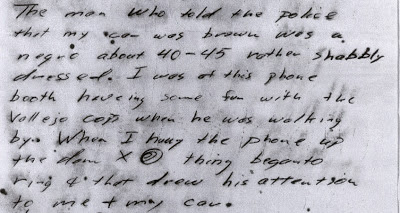 The man who told the police
that my car was brown was a
negro about 40-45 rather shabbly
dressed. I was at this phone
booth haveing some fun with the
Vallejo cop when he was walking
by. When I hung the phone up
the dam X @ thing began to
ring & that drew his attention
to me + my car.